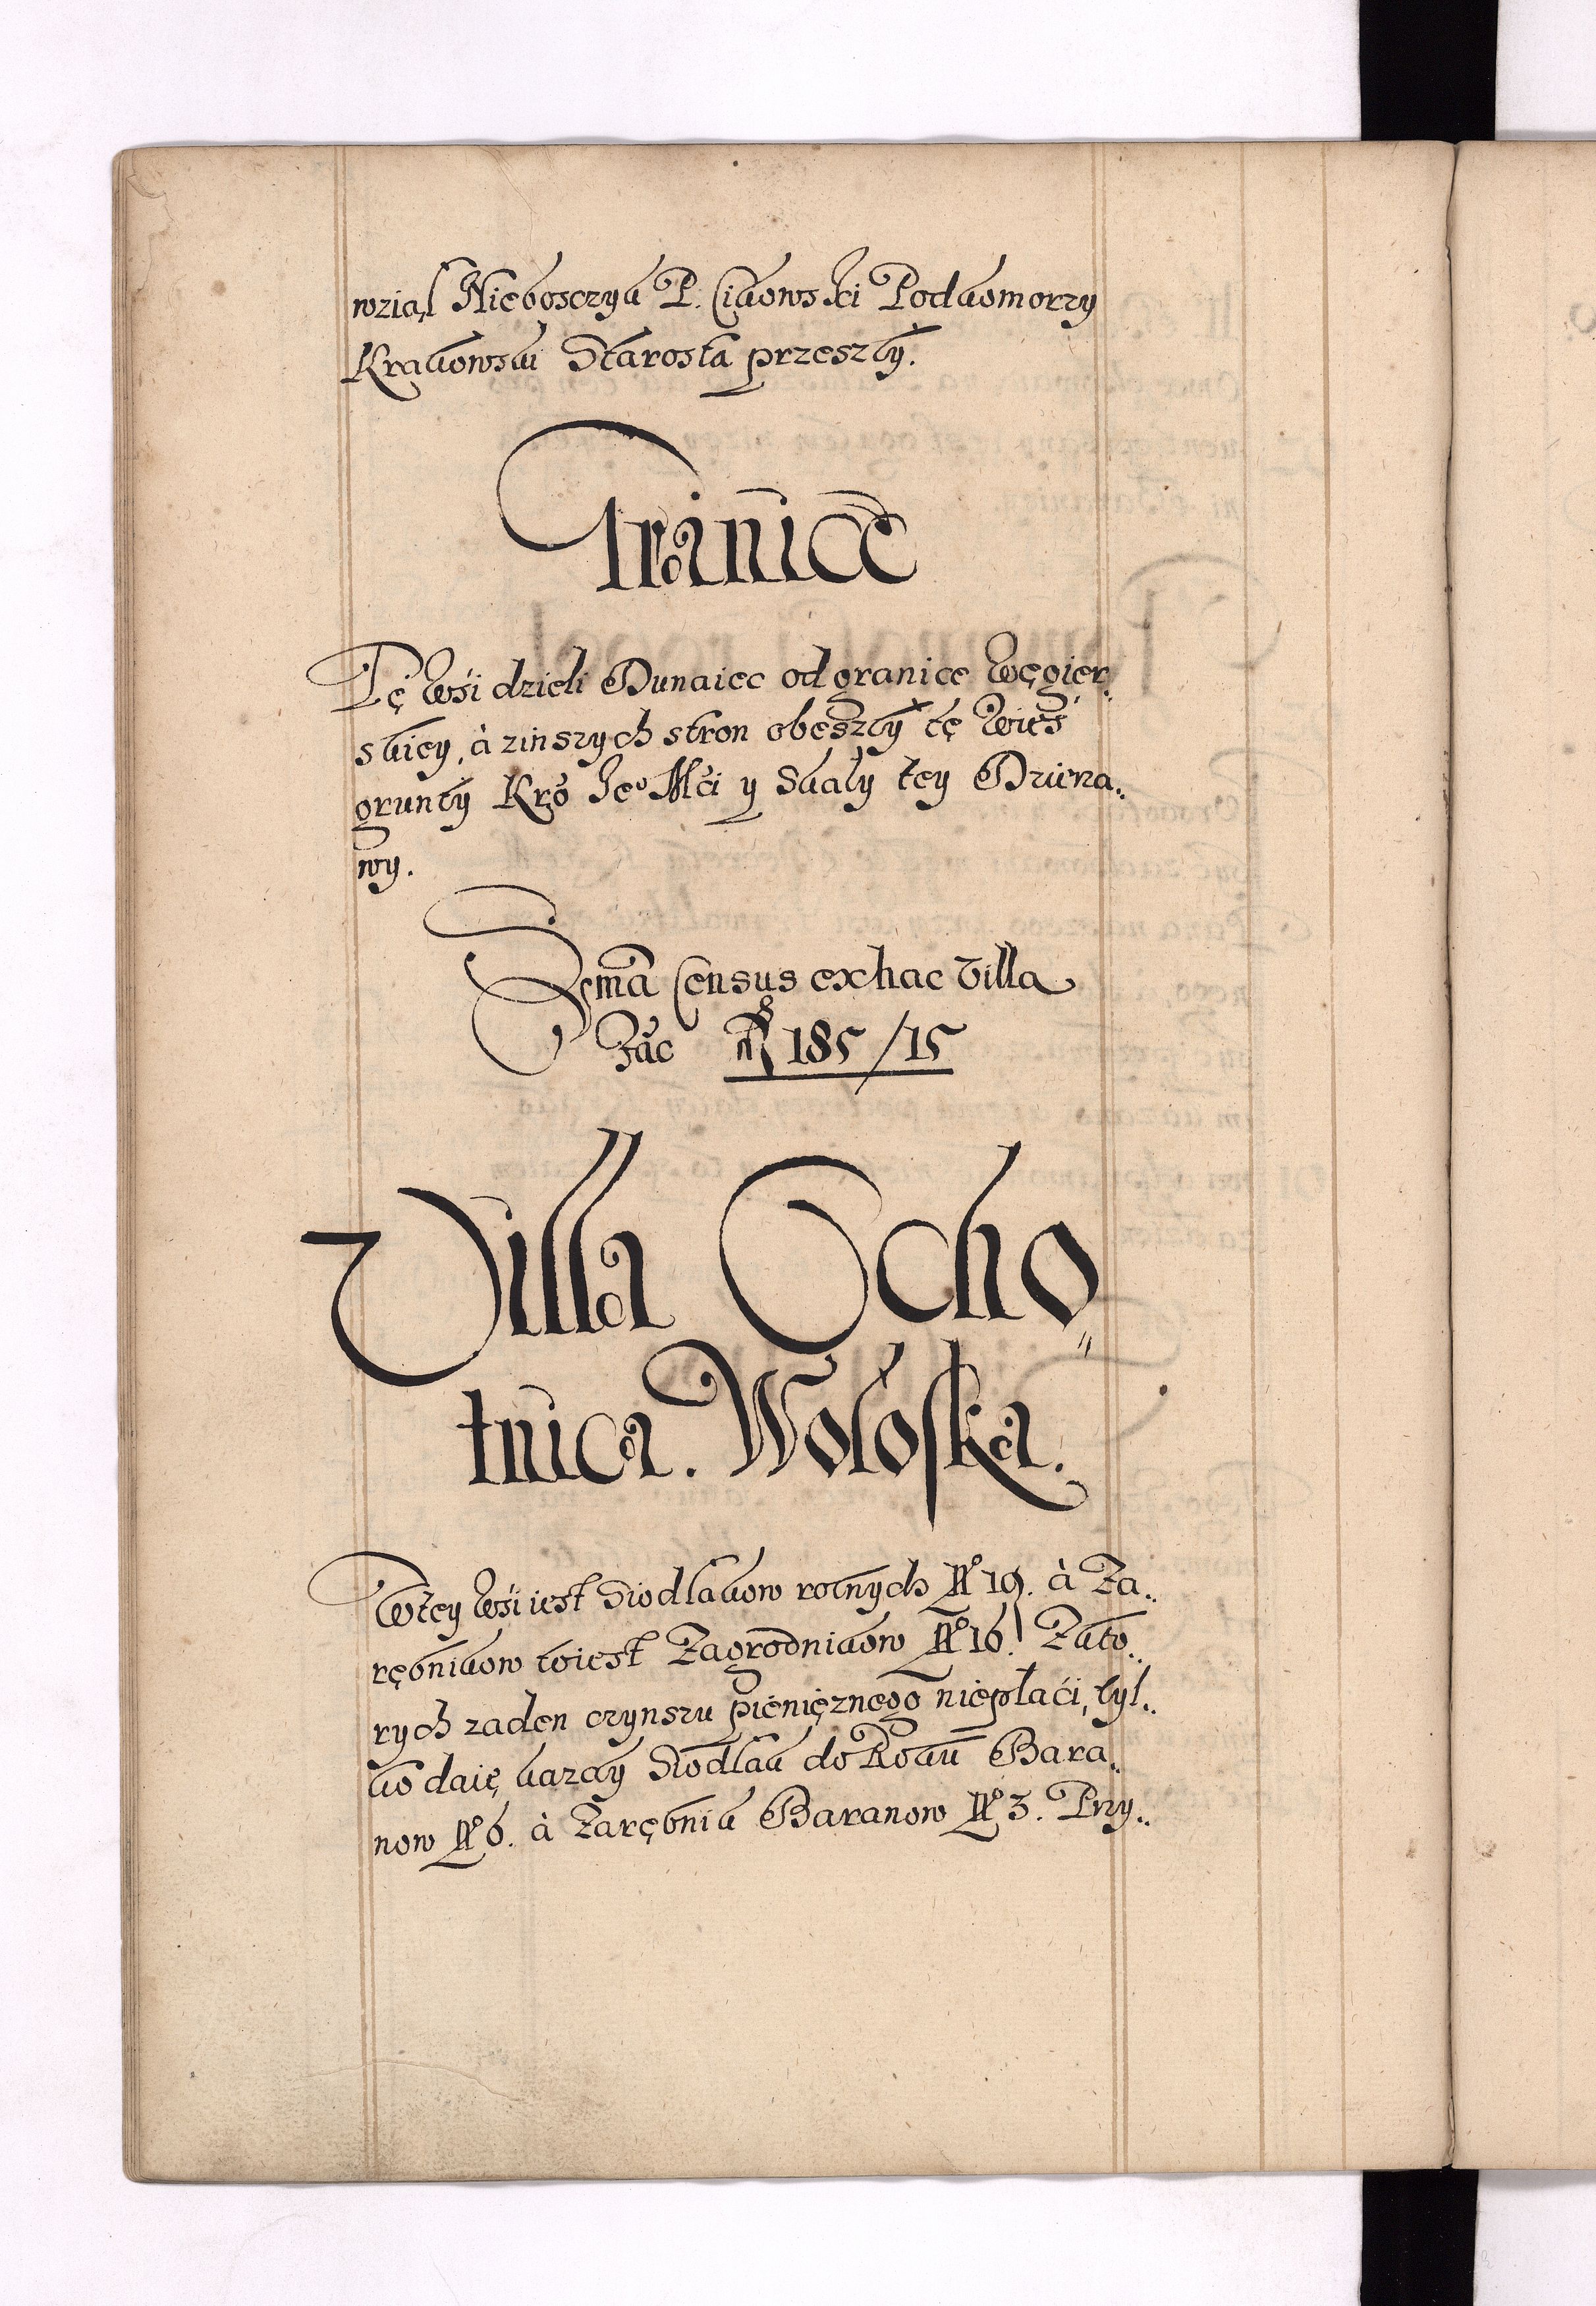 wziął Nieboszczyk P. Cikowski Podkomorzy
Krakowski Starosta przeszły.
Granice
Tę wśi dzieli Dunaiec od granice Węgier..
skiey, à zinszych stron obeszły tę Wieś
grunty Kro Jeo Mći y Skały tey Dzierza..
wy.
Sma Census ex hac Villa
fac 185/15
Villa Ocho„
tnica. Wołoska.
Wtey wśi iest Siodlakow rolnych No 19. à Za..
rębnikow toiest Zagrodnikow No 16. Zkto..
rych zaden czynszu pieniężnego niepłaći, tyl..
ko daię kazdy Siodlak do Roku Bara..
now No 6. à Zarębnik Baranow No 3. Przy..